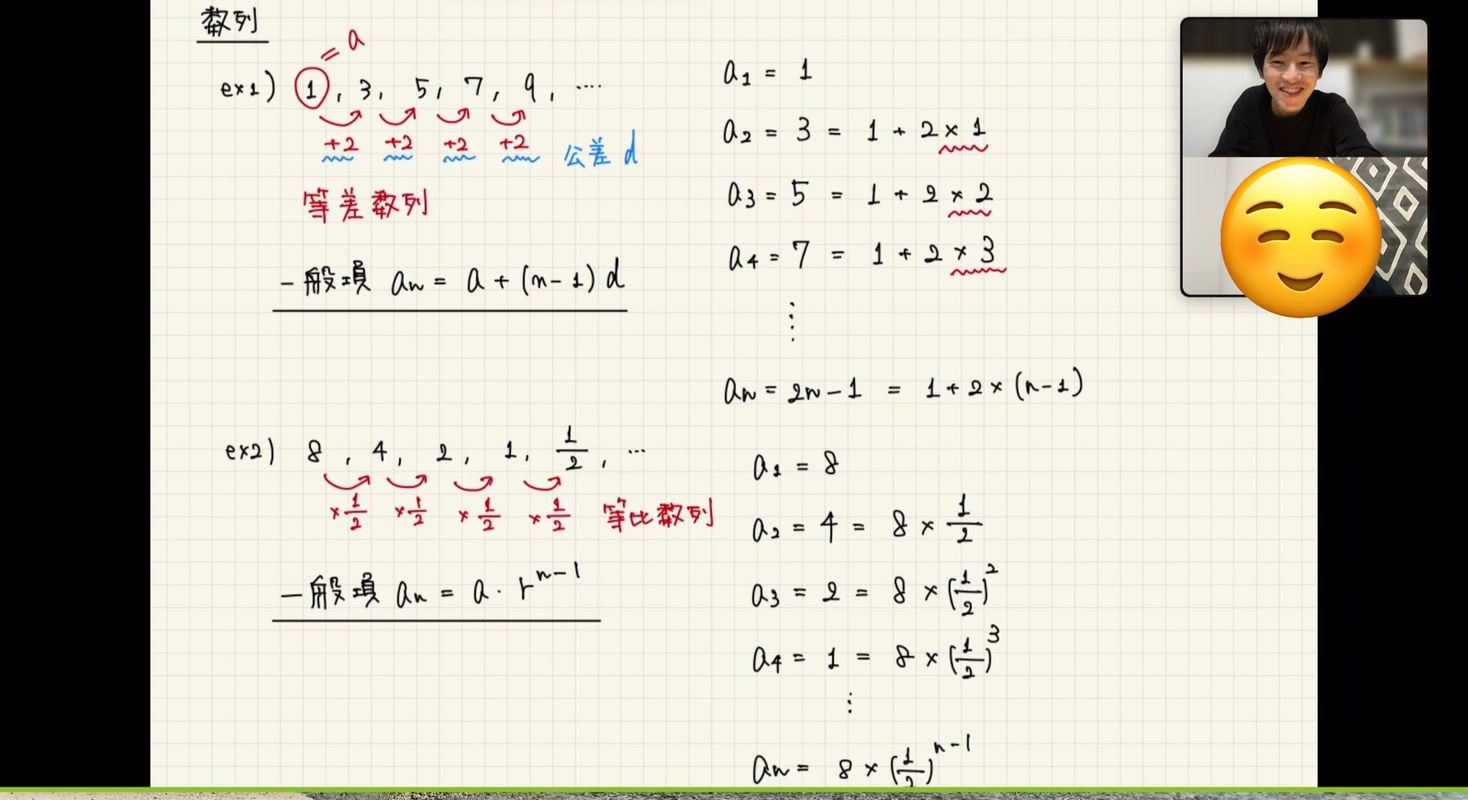 数列
= a
ex1) 1, 3, 5, 7, 9, ....
+2 +2 +2 +2 公差 d
等差数列
一般項 an = a + (n-1) d
a1 = 1
a2 = 3 = 1 + 2 × 1
a3 = 5 = 1 + 2 × 2
a4 = 7 = 1 + 2 × 3
⋮
an = 2n-1 = 1 + 2 × (n-1)
ex2) 8, 4, 2, 1, 1/2, ...
×1/2 ×1/2 ×1/2 ×1/2 等比数列
一般項 an = a · r^n-1
a1 = 8
a2 = 4 = 8 × 1/2
a3 = 2 = 8 × (1/2)^2
a4 = 1 = 8 × (1/2)^3
⋮
an = 8 × (1/2)^n-1